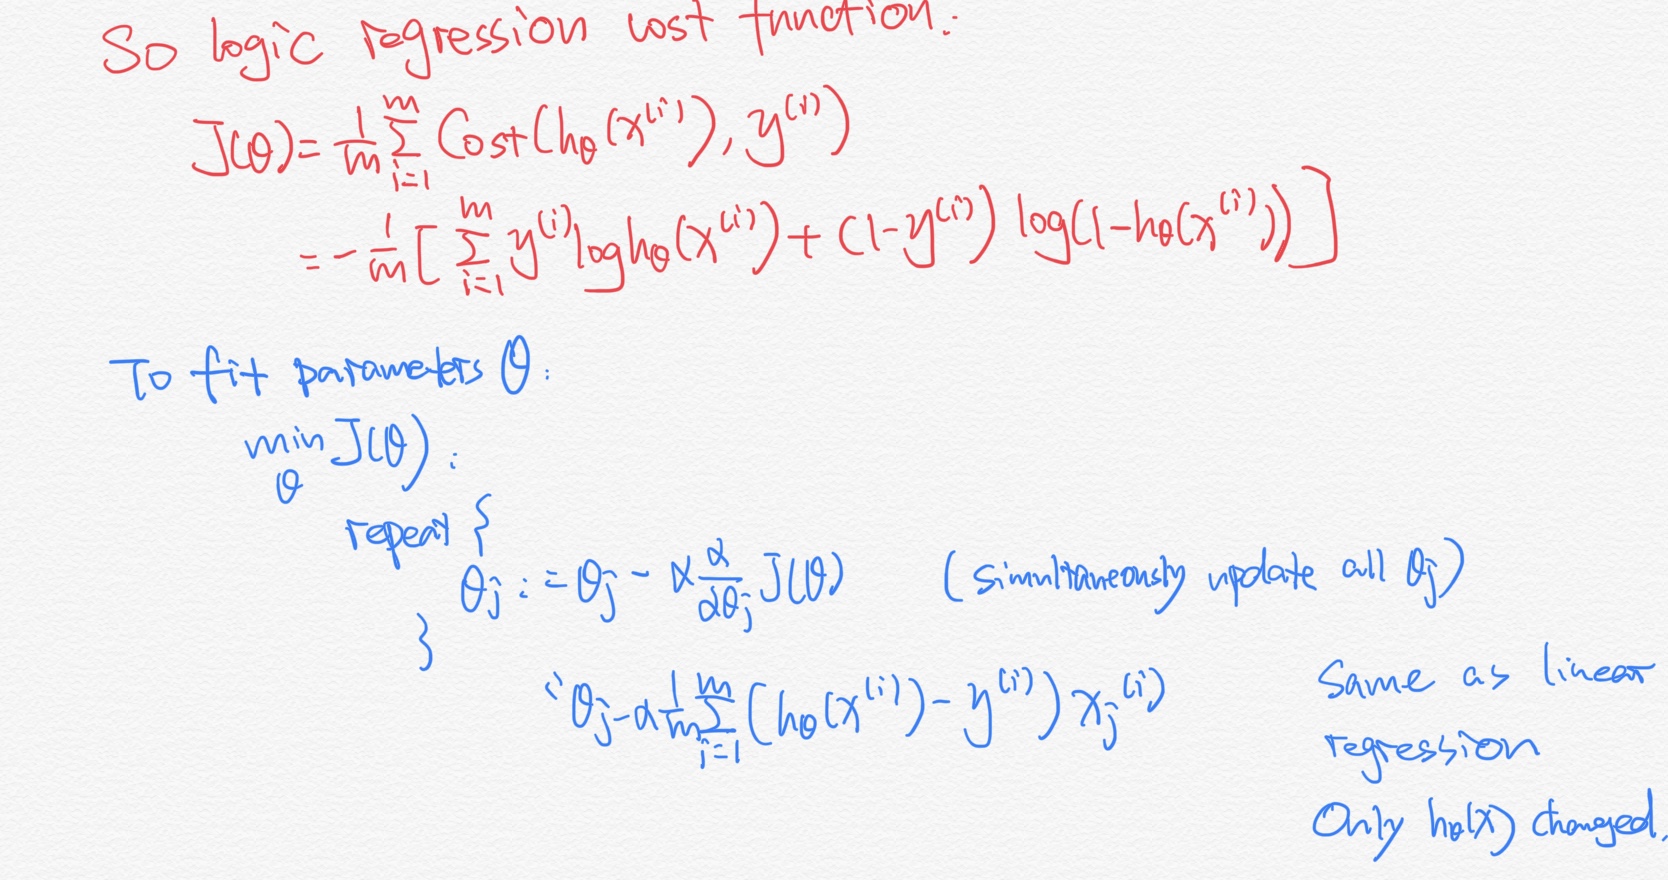 So logic regression cost function:
J(θ) = 1/m Σ_{i=1}^{m} Cost(h_θ(x^{(i)}), y^{(i)})
= -1/m [ Σ_{i=1}^{m} y^{(i)} log h_θ(x^{(i)}) + (1-y^{(i)}) log(1-h_θ(x^{(i)})) ]
To fit parameters θ:
min_θ J(θ):
repeat {
θ_j := θ_j - α ∂/∂θ_j J(θ) (simultaneously update all θ_j)
}
θ_j - α 1/m Σ_{i=1}^{m} (h_θ(x^{(i)}) - y^{(i)}) x_j^{(i)}
Same as linear
regression
Only h_θ(x) changed.